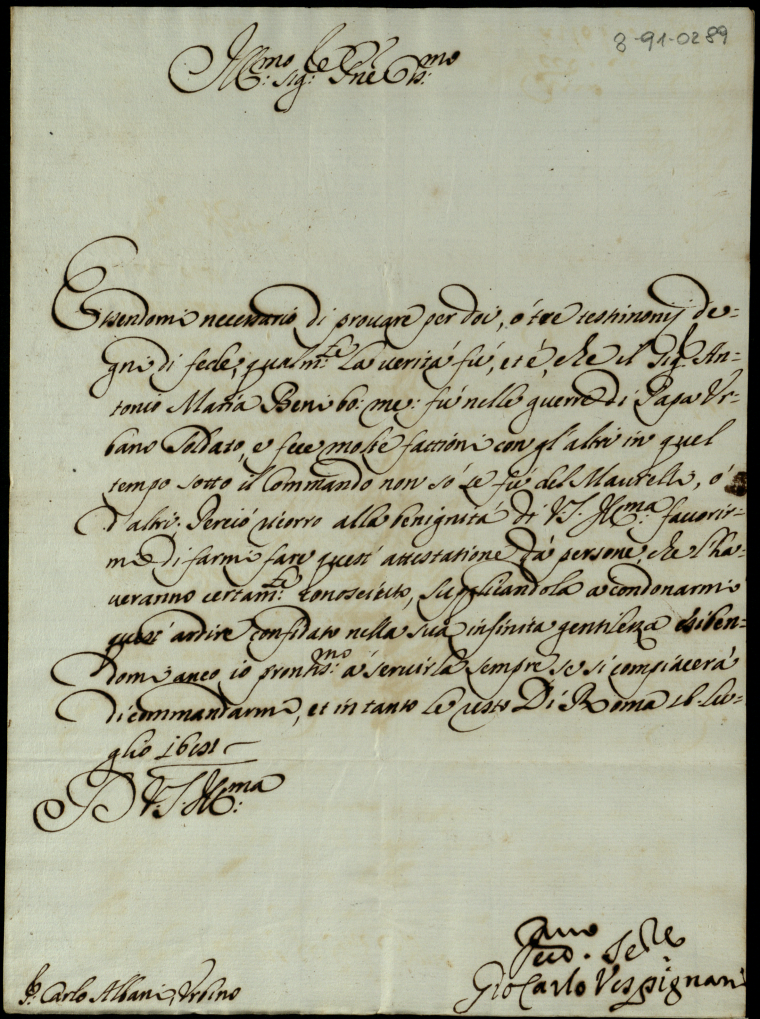 3-91-0289
Ill:mo Sig:re P̃ne
Essendomi necessario di prouare per doi, ó tre testimonij de-
gni di fede, qualm:te la uerità fù, et é, che il Sig:r An-
tonio Maria Beni bo: me: fù nelle guerre di Papa Vr-
bano Soldato, e fece molte fattioni con gl'altri in quel
tempo sotto il Commando non só se fù del Maurelli, ó
d'altri. Perció ricorro alla benignità di V.S. Ill:ma fauorir-
mi di farmi fare quest'attestatione dà persone, che l'ha-
ueranno certam:te conosciuto, supplicandola a condonarmi
quest'ardire confidato nella sua infinita gentilezza esiben-
domi anco io pront:mo á seruirla sempre se si compiacerà
di commandarmi, et in tanto le resto Di Roma 16 Lu-
glio
D V.S. Ill:ma
Carlo Albani Vrbino
Deu:mo Se:re
Gio Carlo Vespignani